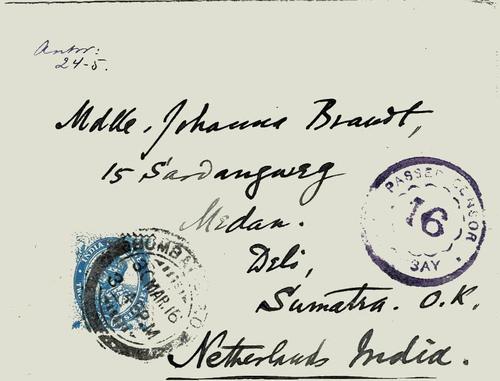 Antw:
24-5.
Mdlle. Johanna Brandt,
15 Serdangweg
Medan.
Deli,
Sumatra. O.K.
Netherlands India.
PASSED CENSOR
16
BAY
INDIA
BOMBAY
31 MAR. 16
P.M